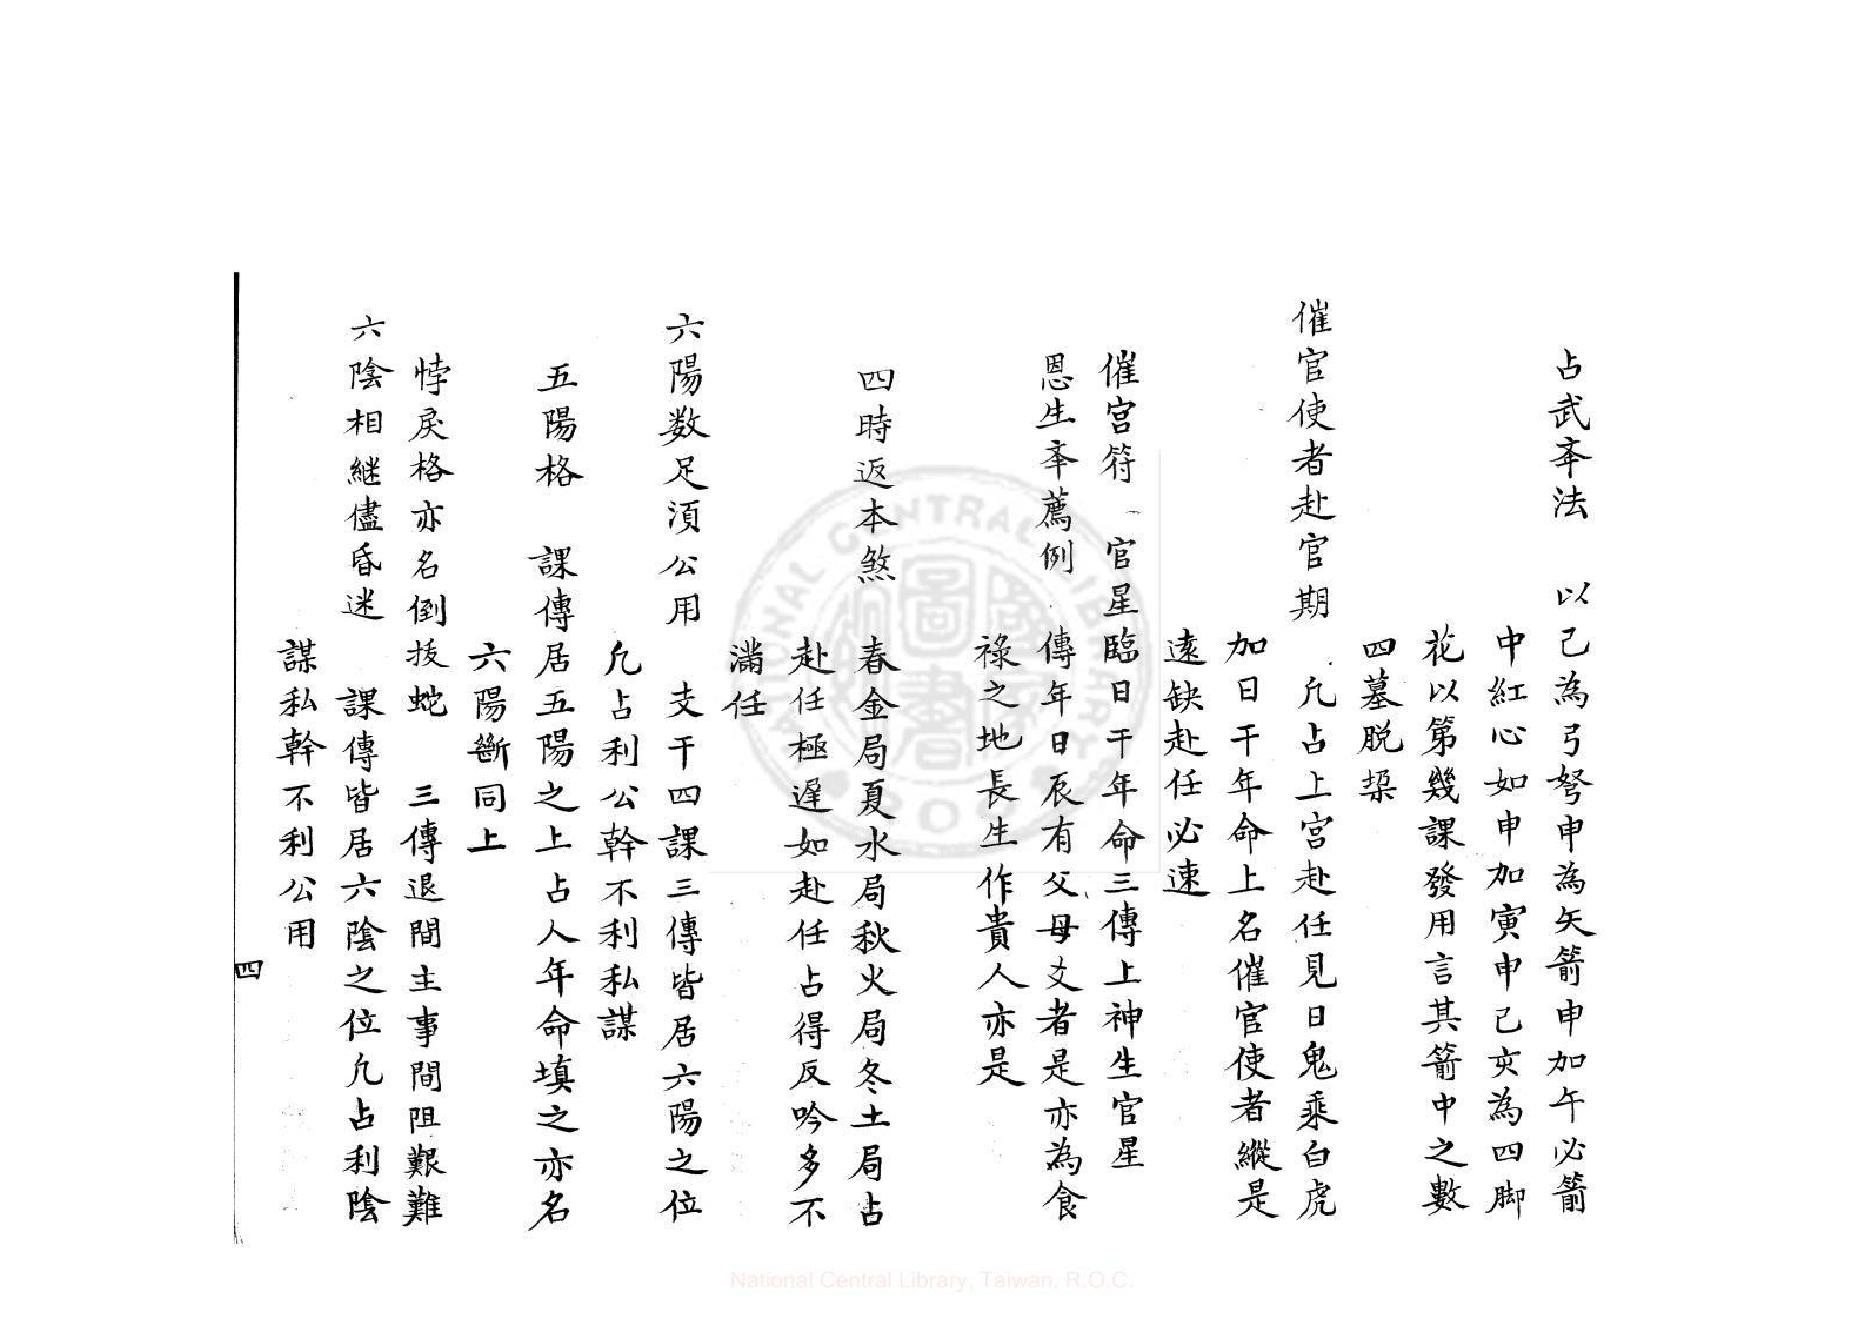 占武夲法　以己為弓弩申為矢箭申加午必箭
中紅心如申加寅申巳亥為四脚
花以第幾課發用言其箭中之數
四墓脱
催官使者赴官期　凢占上官赴任見日鬼乘白虎
加日干年命上名催官使者縱是
遠缺赴任必速
催官符　官星臨日干年命三傳上神生官星
恩生夲薦例　傳年日辰有父母爻者是亦為食
祿之地長生作貴人亦是
四時返本煞　春金局夏水局秋火局冬土局占
赴任極遲如赴任占得反吟多不
滿任
六陽数足湏公用　支干四課三傳皆居六陽之位
凢占利公幹不利私謀
五陽格　課傳居五陽之上占人年命填之亦名
六陽斷同上
悖戾格亦名倒拔蛇　三傳退間主事間阻艱難
六陰相継儘昏迷　課傳皆居六陰之位凢占利陰
謀私幹不利公用
四
National Central Library, Taiwan, R.O.C.